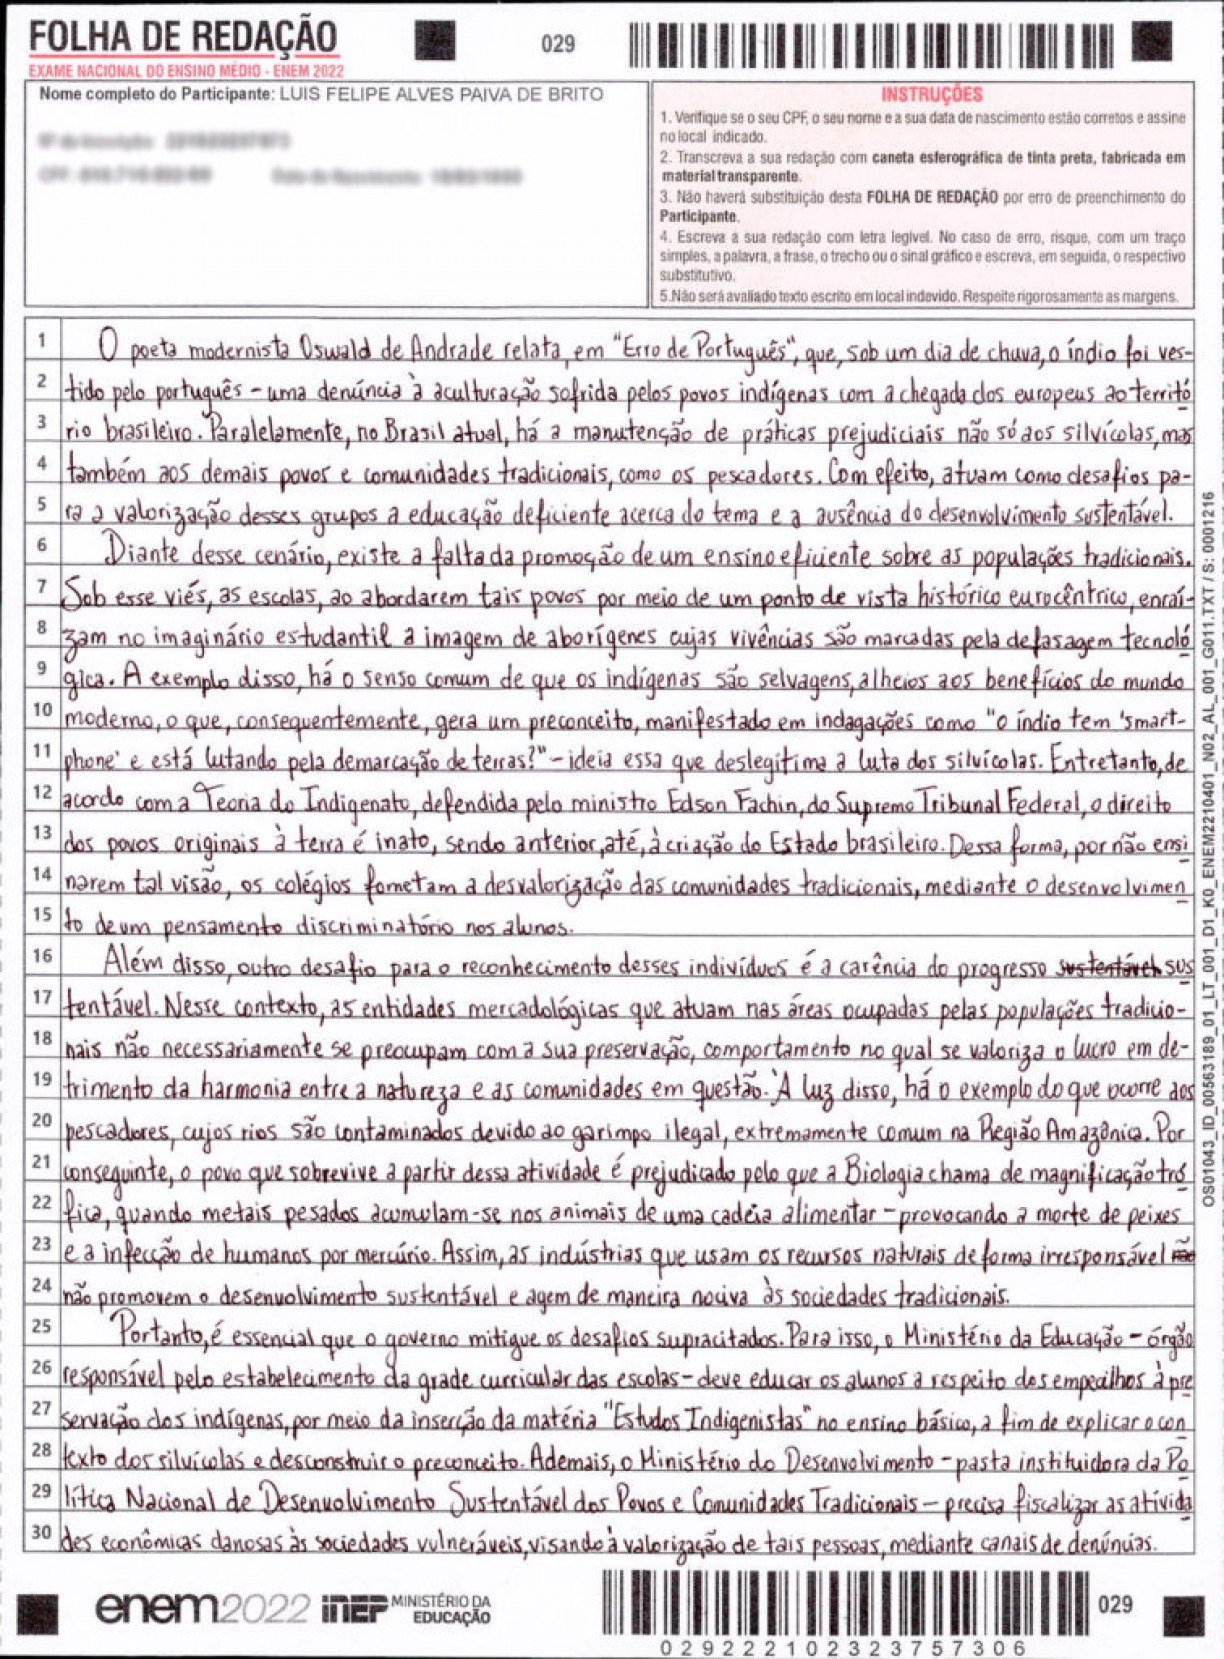 FOLHA DE REDAÇÃO
029
EXAME NACIONAL DO ENSINO MÉDIO - ENEM 2022
Nome completo do Participante: LUIS FELIPE ALVES PAIVA DE BRITO
INSTRUÇÕES
1. Verifique se o seu CPF, o seu nome e a sua data de nascimento estão corretos e assine
no local indicado.
2. Transcreva a sua redação com caneta esferográfica de tinta preta, fabricada em
material transparente.
3. Não haverá substituição desta FOLHA DE REDAÇÃO por erro de preenchimento do
Participante.
4. Escreva a sua redação com letra legível. No caso de erro, risque, com um traço
simples, a palavra, a frase, o trecho ou o sinal gráfico e escreva, em seguida, o respectivo
substitutivo.
5.Não será avaliado texto escrito em local indevido. Respeite rigorosamente as margens.
1 O poeta modernista Oswald de Andrade relata, em "Erro de Português", que, sob um dia de chuva, o índio foi ves-
2 tido pelo português - uma denúncia à aculturação sofrida pelos povos indígenas com a chegada dos europeus ao territó
3 rio brasileiro. Paralelamente, no Brasil atual, há a manutenção de práticas prejudiciais não só aos silvícolas, mas
4 também aos demais povos e comunidades tradicionais, como os pescadores. Com efeito, atuam como desafios pa-
5 ra a valorização desses grupos a educação deficiente acerca do tema e a ausência do desenvolvimento sustentável.
6 Diante desse cenário, existe a falta da promoção de um ensino eficiente sobre as populações tradicionais.
7 Sob esse viés, as escolas, ao abordarem tais povos por meio de um ponto de vista histórico eurocêntrico, enraí-
8 zam no imaginário estudantil a imagem de aborígenes cujas vivências são marcadas pela defasagem tecnoló
9 gica. A exemplo disso, há o senso comum de que os indígenas são selvagens, alheios aos benefícios do mundo
10 moderno, o que, consequentemente, gera um preconceito, manifestado em indagações como "o índio tem 'smart-
11 phone' e está lutando pela demarcação de terras?" - ideia essa que deslegitima a luta dos silvícolas. Entretanto, de
12 acordo com a Teoria do Indigenato, defendida pelo ministro Edson Fachin, do Supremo Tribunal Federal, o direito
13 dos povos originais à terra é inato, sendo anterior, até, à criação do Estado brasileiro. Dessa forma, por não ensi
14 narem tal visão, os colégios fometam a desvalorização das comunidades tradicionais, mediante o desenvolvimen
15 to de um pensamento discriminatório nos alunos.
16 Além disso, outro desafio para o reconhecimento desses indivíduos é a carência do progresso sustentável sus
17 tentável. Nesse contexto, as entidades mercadológicas que atuam nas áreas ocupadas pelas populações tradicio-
18 nais não necessariamente se preocupam com a sua preservação, comportamento no qual se valoriza o lucro em de-
19 trimento da harmonia entre a natureza e as comunidades em questão. À luz disso, há o exemplo do que ocorre aos
20 pescadores, cujos rios são contaminados devido ao garimpo ilegal, extremamente comum na Região Amazônica. Por
21 conseguinte, o povo que sobrevive a partir dessa atividade é prejudicado pelo que a Biologia chama de magnificação tró
22 fica, quando metais pesados acumulam-se nos animais de uma cadeia alimentar - provocando a morte de peixes
23 e a infecção de humanos por mercúrio. Assim, as indústrias que usam os recursos naturais de forma irresponsável não
24 não promovem o desenvolvimento sustentável e agem de maneira nociva às sociedades tradicionais.
25 Portanto, é essencial que o governo mitigue os desafios supracitados. Para isso, o Ministério da Educação - órgão
26 responsável pelo estabelecimento da grade curricular das escolas - deve educar os alunos a respeito dos empecilhos à pre
27 servação dos indígenas, por meio da inserção da matéria "Estudos Indigenistas" no ensino básico, a fim de explicar o con
28 texto dos silvícolas e desconstruir o preconceito. Ademais, o Ministério do Desenvolvimento - pasta instituidora da Po
29 lítica Nacional de Desenvolvimento Sustentável dos Povos e Comunidades Tradicionais - precisa fiscalizar as ativida
30 des econômicas danosas às sociedades vulneráveis, visando à valorização de tais pessoas, mediante canais de denúncias.
OS01043_ID_00563189_01_LT_001_D1_K0_ENEM2210401_N02_AL_001_G011.TXT / S: 0001216
enem2022 inep MINISTÉRIO DA
EDUCAÇÃO
029
029222102323757306